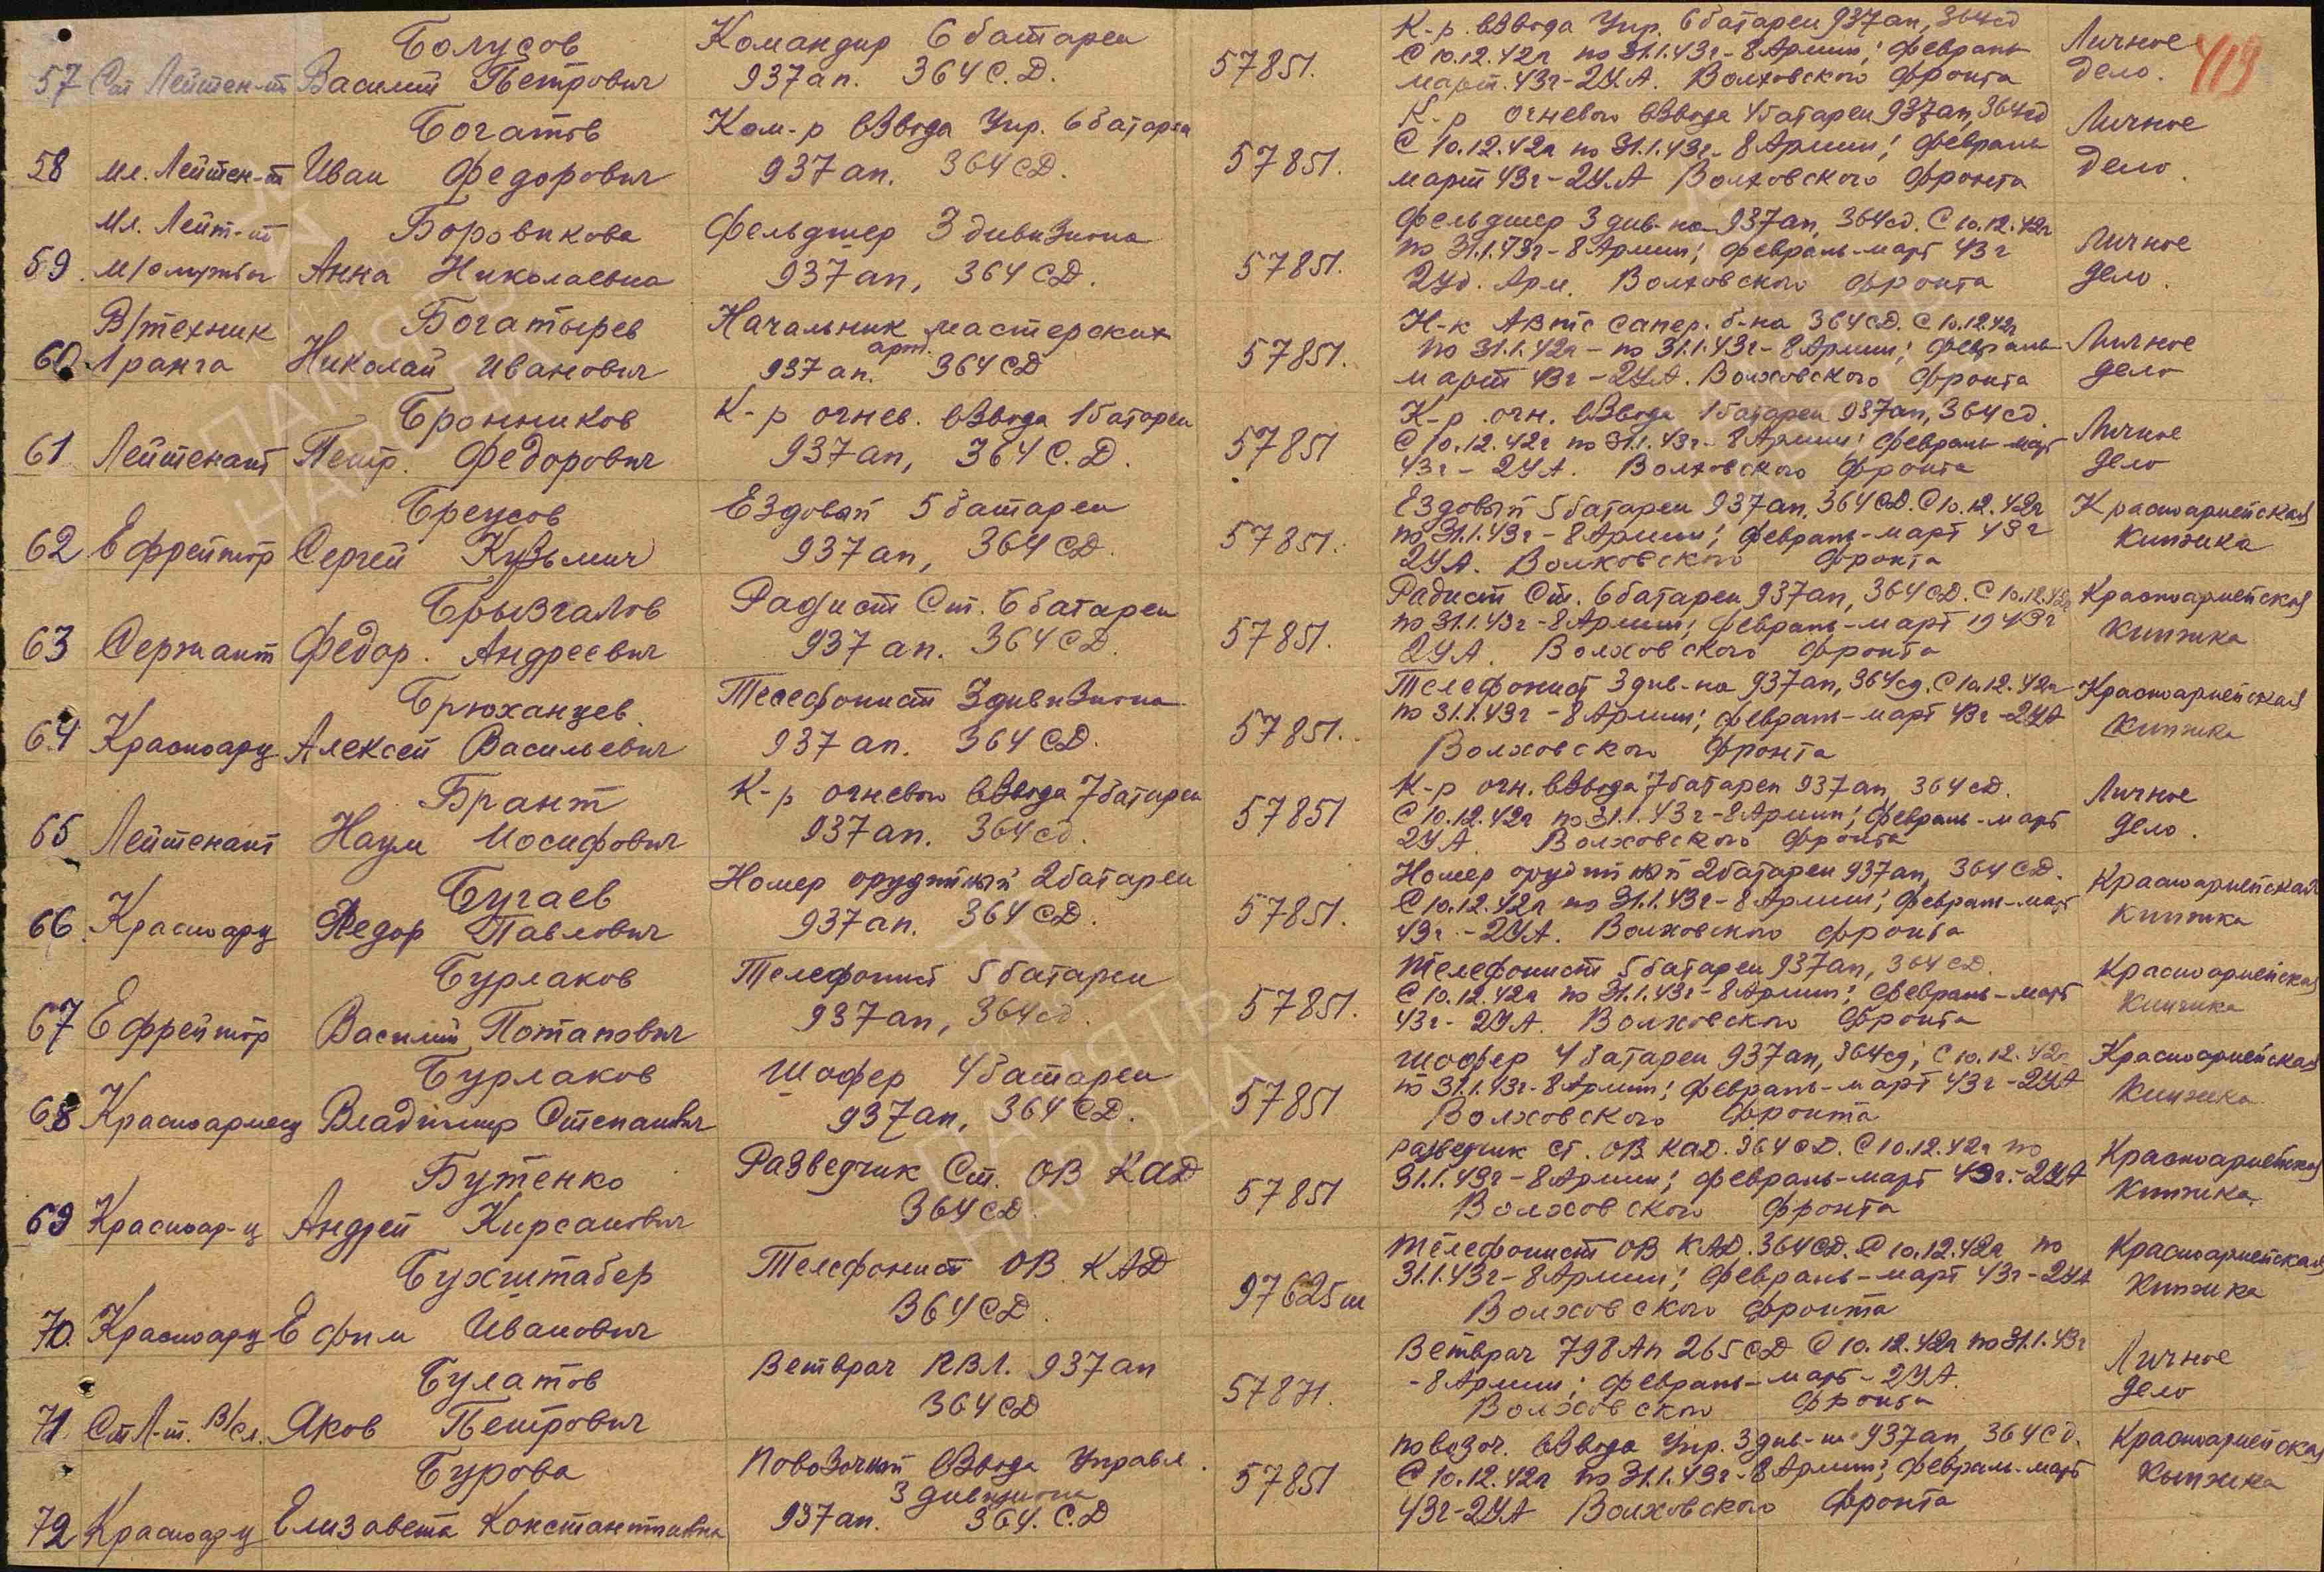 Болусов Командир 6 батареи К-р. взвода Упр. 6 батареи 937 ап, 364 сд Личное 419
57 Ст Лейтен-т Василий Петрович 937 ап. 364 С.Д. 57851. С 10.12.42г по 31.1.43г - 8 Армии; февраль дело.
март. 43г - 2У.А. Волховского фронта
Богатов Ком-р взвода Упр. 6 батареи К-р огневого взвода 4 батареи 937 ап, 364 сд Личное
58 мл. Лейтен-т Иван Федорович 937 ап. 364 СД. 57851. С 10.12.42г по 31.1.43г - 8 Армии; февраль дело.
март 43г - 2У.А Волховского фронта
Мл. Лейт-т Боровикова Фельдшер 3 дивизиона Фельдшер 3 див-на 937 ап, 364 сд. С 10.12.42г Личное
59. м/службы Анна Николаевна 937 ап, 364 СД. 57851. по 31.1.43г - 8 Армии; февраль-март 43г дело.
2Уд. Арм. Волховского фронта
В/техник Богатырев Начальник мастерских Н-к АВтс сапер. б-на 364 СД. С 10.12.42г Личное
60. 1 ранга Николай Иванович 937 арт. ап. 364 СД 57851. по 31.1.42г - по 31.1.43г - 8 Армии; февраль дело
март 43г - 2У.А. Волховского фронта
Бронников К-р огнев. взвода 1 батареи К-р. огн. взвода 1 батареи 937 ап, 364 сд. Личное
61 Лейтенант Петр. Федорович 937 ап, 364 С.Д. 57851 С 10.12.42г по 31.1.43г - 8 Армии; февраль-март дело
43г - 2У.А. Волховского фронта
Бреусов Ездовый 5 батареи Ездовый 5 батареи 937 ап, 364 СД. С 10.12.42г Красноармейская
62 Ефрейтор Сергей Кузьмич 937 ап, 364 СД. 57851. по 31.1.43г - 8 Армии; февраль-март 43г книжка
2У.А. Волховского фронта
Брызгалов Радист Ст. 6 батареи Радист Ст. 6 батареи 937 ап, 364 СД. С 10.12.42г Красноармейская
63 Сержант Федор. Андреевич 937 ап. 364 СД. 57851. по 31.1.43г - 8 Армии; февраль-март 1943г книжка
2У.А. Волховского фронта
Брюханцев Телефонист 3 дивизиона Телефонист 3 див-на 937 ап, 364 сд. С 10.12.42г Красноармейская
64 Красноарц Алексей Васильевич 937 ап. 364 СД. 57851. по 31.1.43г - 8 Армии; февраль-март 43г - 2УА книжка
Волховского фронта
Брант К-р огневого взвода 7 батареи К-р огн. взвода 7 батареи 937 ап, 364 сд. Личное
65 Лейтенант Наум Иосифович 937 ап. 364 сд. 57851 С 10.12.42г по 31.1.43г - 8 Армии; февраль-март дело.
2УА Волховского фронта
Бугаев Номер орудийный 2 батареи Номер орудийный 2 батареи 937 ап, 364 СД. Красноармейская
66. Красноарц Федор Павлович 937 ап. 364 СД. 57851. С 10.12.42г по 31.1.43г - 8 Армии; февраль-март книжка
43г. - 2У.А. Волховского фронта
Бурлаков Телефонист 5 батареи Телефонист 5 батареи 937 ап, 364 СД. Красноармейская
67 Ефрейтор Василий Потапович 937 ап, 364 сд. 57851. С 10.12.42г по 31.1.43г - 8 Армии; февраль-март книжка
43г - 2У.А. Волховского фронта
Бурлаков Шофер 4 батареи Шофер 4 батареи 937 ап, 364 сд; С 10.12.42г Красноармейская
68 Красноармеец Владимир Степанович 937 ап, 364 СД. 57851 по 31.1.43г - 8 Армии; февраль-март 43г - 2УА книжка
Волховского фронта
Бутенко Разведчик Ст. ОВ КАД разведчик ст. ОВ КАД. 364 СД. С 10.12.42г по Красноармейская
69 Красноар-ц Андрей Кирсанович 364 СД 57851 31.1.43г - 8 Армии; февраль-март 43г. - 2УА книжка
Волховского фронта
Бухштабер Телефонист ОВ КАД Телефонист ОВ КАД. 364 СД. С 10.12.42г по Красноармейская
70. Красноарц Ефим Иванович 364 СД. 97625ш 31.1.43г - 8 Армии; февраль-март 43г - 2УА книжка
Волховского фронта
Булатов Ветврач КВЛ. 937 ап Ветврач 798 Ап 265 СД С 10.12.42г по 31.1.43г Личное
71. Ст Л-т. В/сл. Яков Петрович 364 СД 57871. - 8 Армии; февраль-март - 2У.А. дело
Волховского фронта
Бурова Повозочный взвода Управл. повозоч. взвода Упр. 3 див-на 937 ап, 364 Сд. Красноармейская
72 Красноарц Елизавета Константиновна 3 дивизиона 937 ап. 364. С.Д 57851 С 10.12.42г по 31.1.43г - 8 Армии; февраль-март книжка
43г - 2УА Волховского фронта
ПАМЯТЬ НАРОДА
ПАМЯТЬ НАРОДА